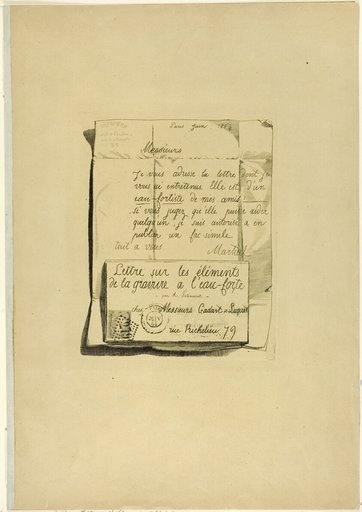 Paris Juin
Messieurs
Je vous adresse la lettre dont je
vous ai entretenus Elle est d'un
eau-fortiste de mes amis
si vous jugez qu'elle puisse aider
quelqu'un je suis autorisé a en
publier un fac simile
tout a vous
Martial
Lettre sur les éléments
de la gravure a l'eau-forte
par A.
chez Messieurs Cadart & Luquet
rue Richelieu, 79